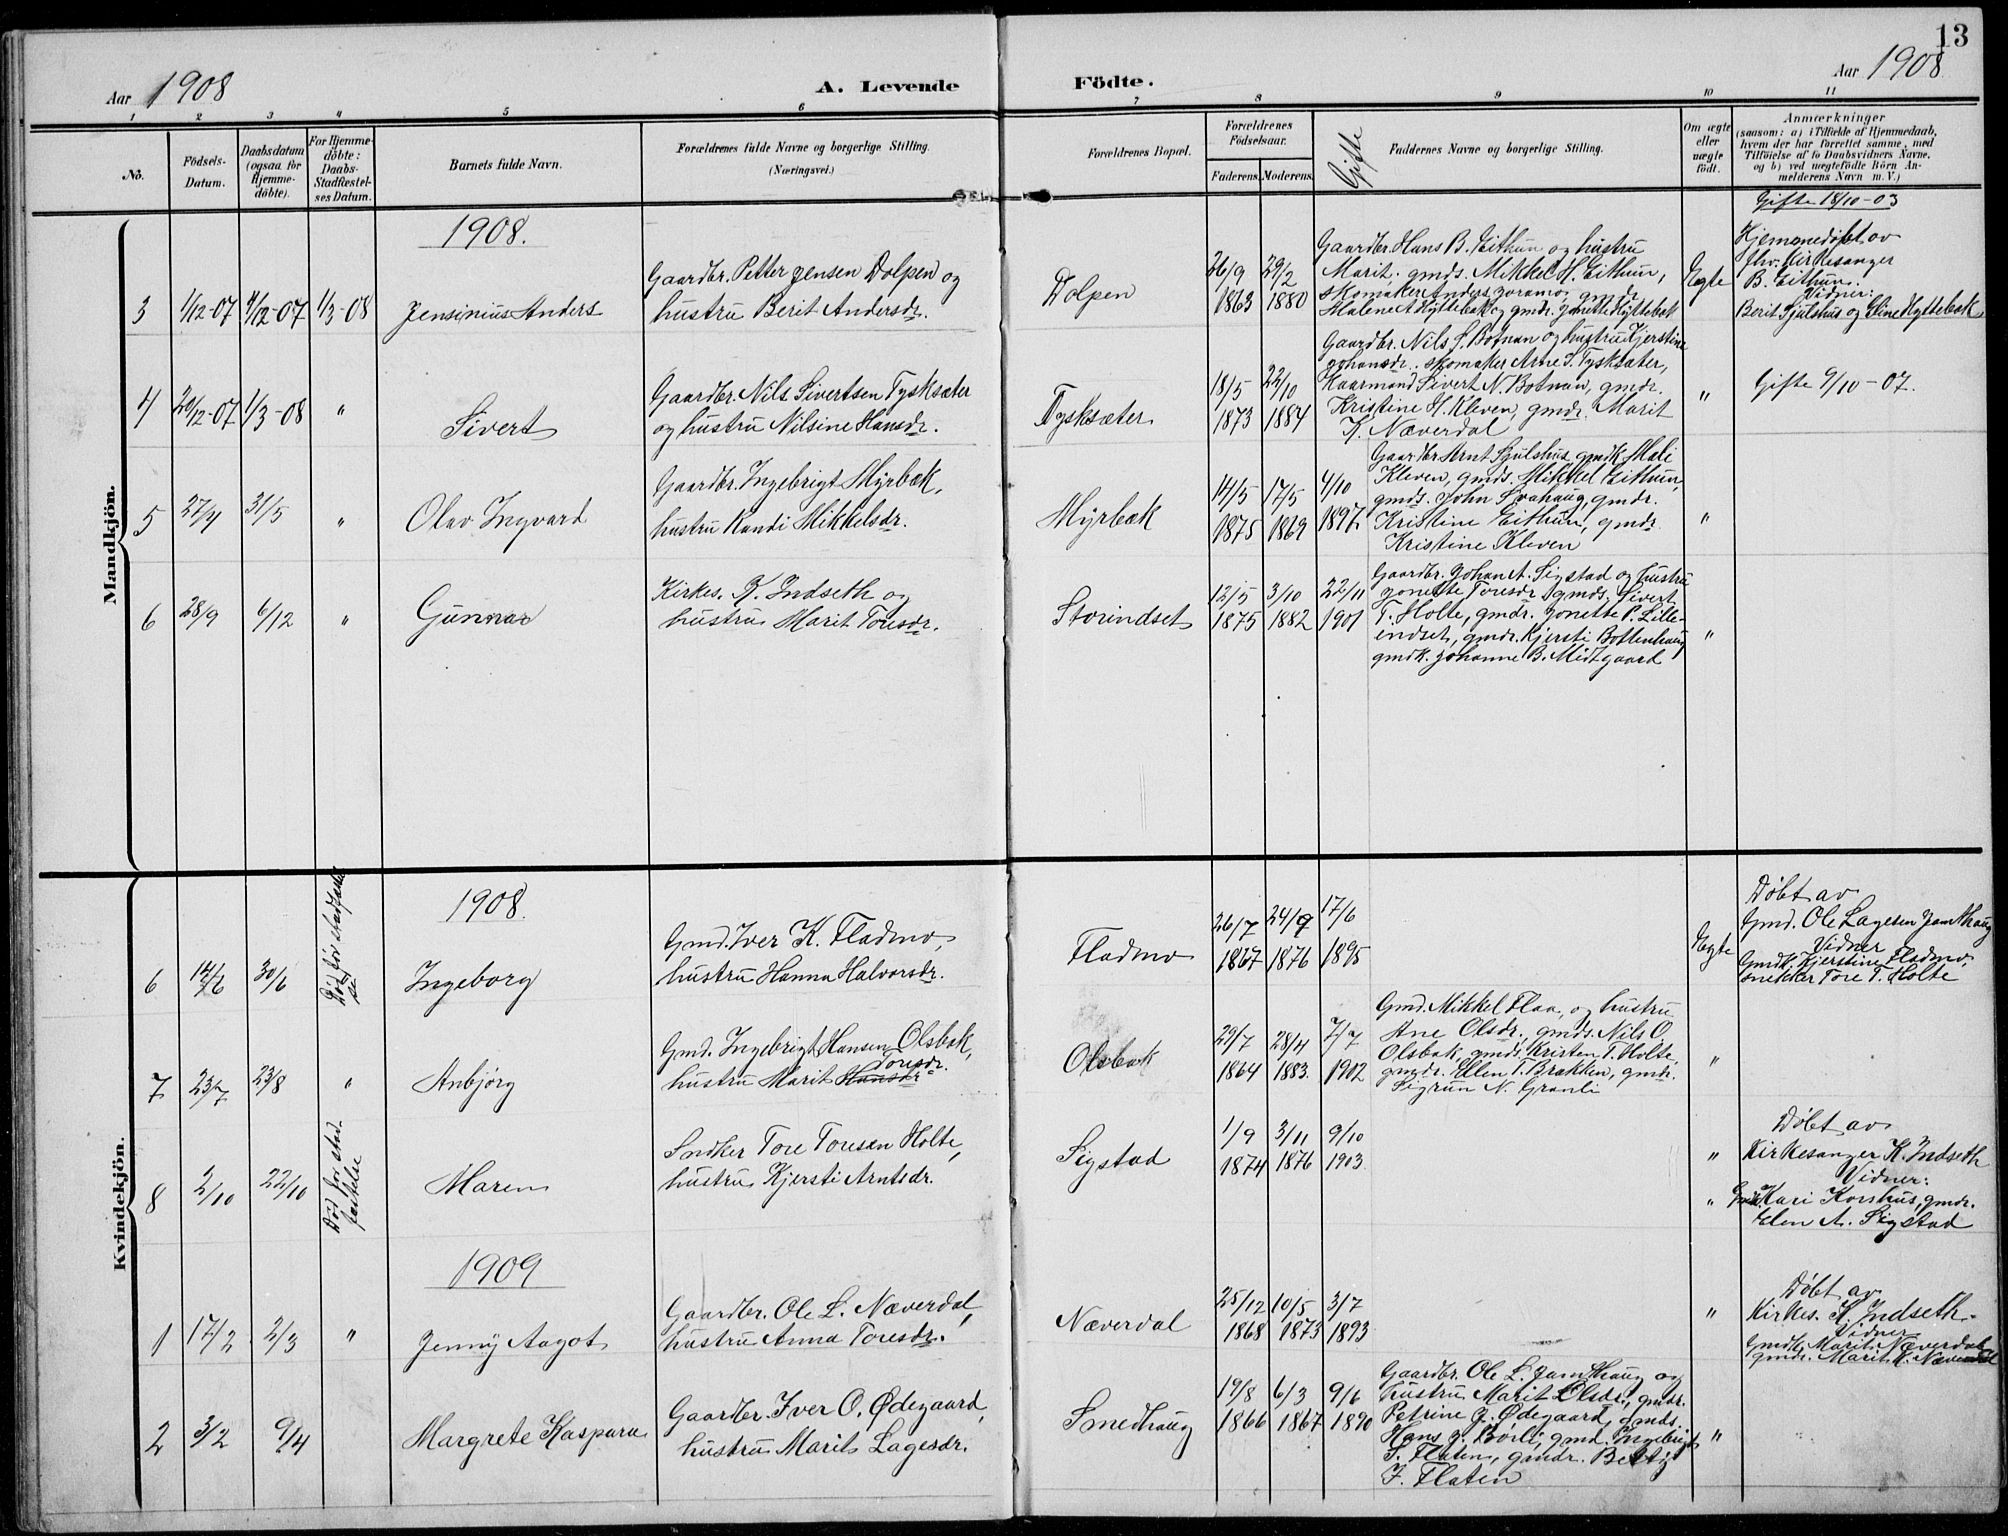 13
Aar 1908
A. Levende Födte.
Aar 1908
1 2 3 4 5 6 7 8 9 10 11
No.
Födsels-
Datum.
Daabsdatum
(ogsaa for
Hjemme-
döbte).
For Hjemme-
döbte:
Daabs-
Stadfæstel-
ses Datum.
Barnets fulde Navn.
Forældrenes fulde Navne og borgerlige Stilling.
(Næringsvei.)
Forældrenes Bopæl.
Forældrenes
Födselsaar.
Faderens. Moderens.
Gifte
Faddernes Navne og borgerlige Stilling.
Om ægte
eller
uægte
födt.
Anmærkninger
(saasom: a) i Tilfælde af Hjemmedaab,
hvem der har forrettet samme, med
Tilföielse af to Daabsvidners Navne,
og b) ved uægtefödte Börn An-
melderens Navn m. V.)
Mandkjön.
1908.
3 1/12-07 4/12-07 1/3-08
Jensinius Anders
Gaardbr. Petter Jensen Dolpen og
hustru Berit Andersdr.
Dolpen
26/9 29/2
1863 1880
Gaardbr. Hans B. Eithun og hustru
Marit, gmds. Mikkel H. Eithun,
skomaker Anders Joramo, gmdr.
Malene A Hyttebak og gmdr. Jonette Hyttebak
Ægte
Gifte 18/10-03
Hjemmedøbt av
fhv. kirkesanger
B. Eithun.
Vidner:
Berit Sjulshus og Eline Hyttebak
4 20/12-07 1/3-08 "
Sivert
Gaardbr. Nils Sivertsen Tysksæter
og hustru Nilsine Hansdr.
Tysksæter
18/5 22/10
1873 1884
Gaardbr. Nils S. Botnan og hustru Kjerstine
Johansdr. skomaker Arne S. Tysksæter,
Kaarmand Sivert N. Botnan, gmdr.
Kristine H. Kleven, gmdr. Marit
K. Næverdal
"
Gifte 9/10-07.
5 27/4 31/5 "
Olav Ingvard
Gaardbr. Ingebrigt Myrbæk,
hustru Randi Mikkelsdr.
Myrbæk
14/5 17/5 4/10
1875 1869 1897
Gaardbr Arnt Sjulshus, gmdk Mali
Kleven, gmds. Mikkel Eithun,
gmds. John Svahaug, gmdr.
Kristine Eithun, gmdr.
Kristine Kleven
"
6 28/9 6/12 "
Gunnar
Kirkes. K. Indseth og
hustru Marit Toresdr.
Storindset
12/5 3/10 22/11
1875 1882 1901
Gaardbr. Johan A. Sigstad og hustru
Jonette Toresdr gmds. Sivert
T. Holte, gmdr. Jonette P. Lille-
endset, gmdr. Kjersti Bottenhaug
gmdk. Johanne B. Midtgaard
"
Kvindekjön.
1908.
6 14/6 30/6
Død før stadfæstel
se
Ingeborg
Gmd. Iver K. Fladmo,
hustru Hanna Halvorsdr.
Fladmo
26/7 24/9 17/6
1867 1876 1895
Ægte
Døbt av
Gmd. Ole Lagesen Jamthaug
Vidner
Gmdk. Kjerstine Fladmo,
snekker Tore T. Holte
7 23/7 23/8 "
Anbjørg
Gmd. Ingebrigt Hansen Olsbak,
Toresdr.
hustru Marit Hansdr
Olsbak
29/7 28/4 7/7
1864 1883. 1902
Gmd. Mikkel Flaa, og hustru
Ane Olsdr. gmds. Nils O.
Olsbak, gmds. Kristen T. Holte,
gmdr. Ellen T. Brækken, gmdr.
Sigrun N. Granli
"
8 2/10 22/10
Død før stad-
fæstelse
Maren
Sndker Tore Toresen Holte,
hustru Kjersti Arntsdr.
Sigstad
1/9 3/11 9/10
1874 1876 1903
"
"
Døbt av
Kirkesanger K. Indseth
Vidner:
Gmdk. Kari Korshus, gmdr.
Elen A. Sigstad
1909
1 17/2 2/3 "
Jenny Aagot
Gaardbr. Ole L. Næverdal,
hustru Anna Toresdr.
Næverdal
25/12 10/5 3/7
1868 1873 1893
"
Døbt av
Kirkes. K. Indseth.
Vidner
Gmdk. Marit Næverdal
gmdr. Marit K. Næverdal
2 3/2 9/4
Margrete Kaspara
Gaardbr. Iver O. Ødegaard,
hustru Marit Lagesdr.
Smedhaug
19/8 6/3 9/6
1866 1867 1890
Gaardbr. Ole L. Jamthaug og
hustru Marit Olsdr, gmdr.
Petrine J. Ødegaard, gmds.
Hans J. Børli, gmd. Ingebrigt
S. Flaten, gmdr. Betty
J. Flaten
"